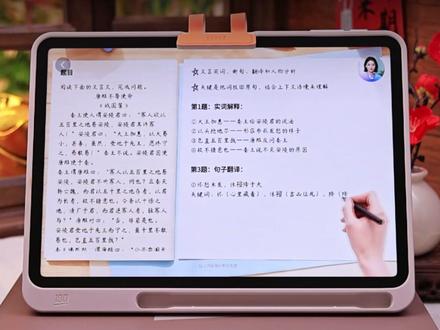 题目
阅读下面的文言文，完成问题。
唐雎不辱使命
《战国策》
秦王使人谓安陵君曰：“寡人欲以
五百里之地易安陵，安陵君其许寡
人！”安陵君曰：“大王加惠，以大易
小，甚善。虽然，受地于先王，愿终
守之，弗敢易！”秦王不说。安陵君因使
唐雎使于秦。
秦王谓唐雎曰：“寡人以五百里之地
易安陵，安陵君不听寡人，何也？且秦灭
韩亡魏，而君以五十里之地存者，以君
为长者，故不错意也。今吾以十倍之
地，请广于君，而君逆寡人者，轻寡人
与？”唐雎对曰：“否，非若是也。
安陵君受地于先王而守之，虽千里不敢
易也，岂直五百里哉？”
☆文言实词、断句、翻译和人物分析
☆关键是把词放回原句，结合上下文语境来理解
第1题：实词解释：
①大王加惠——秦王给安陵君的
②以头抢地尔——
③岂直五百里哉——唐雎反问秦王
④故不错意也——秦王说不灭安陵的原因
第3题：句子翻译：
①怀怒未发，休祲降于天
关键词：怀（心里藏着），休祲（吉凶征兆），降（